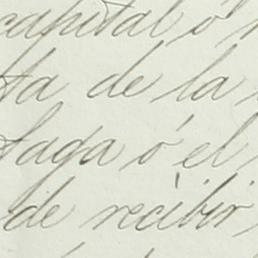 capital ó
ta de la
faga ó el
de recibir